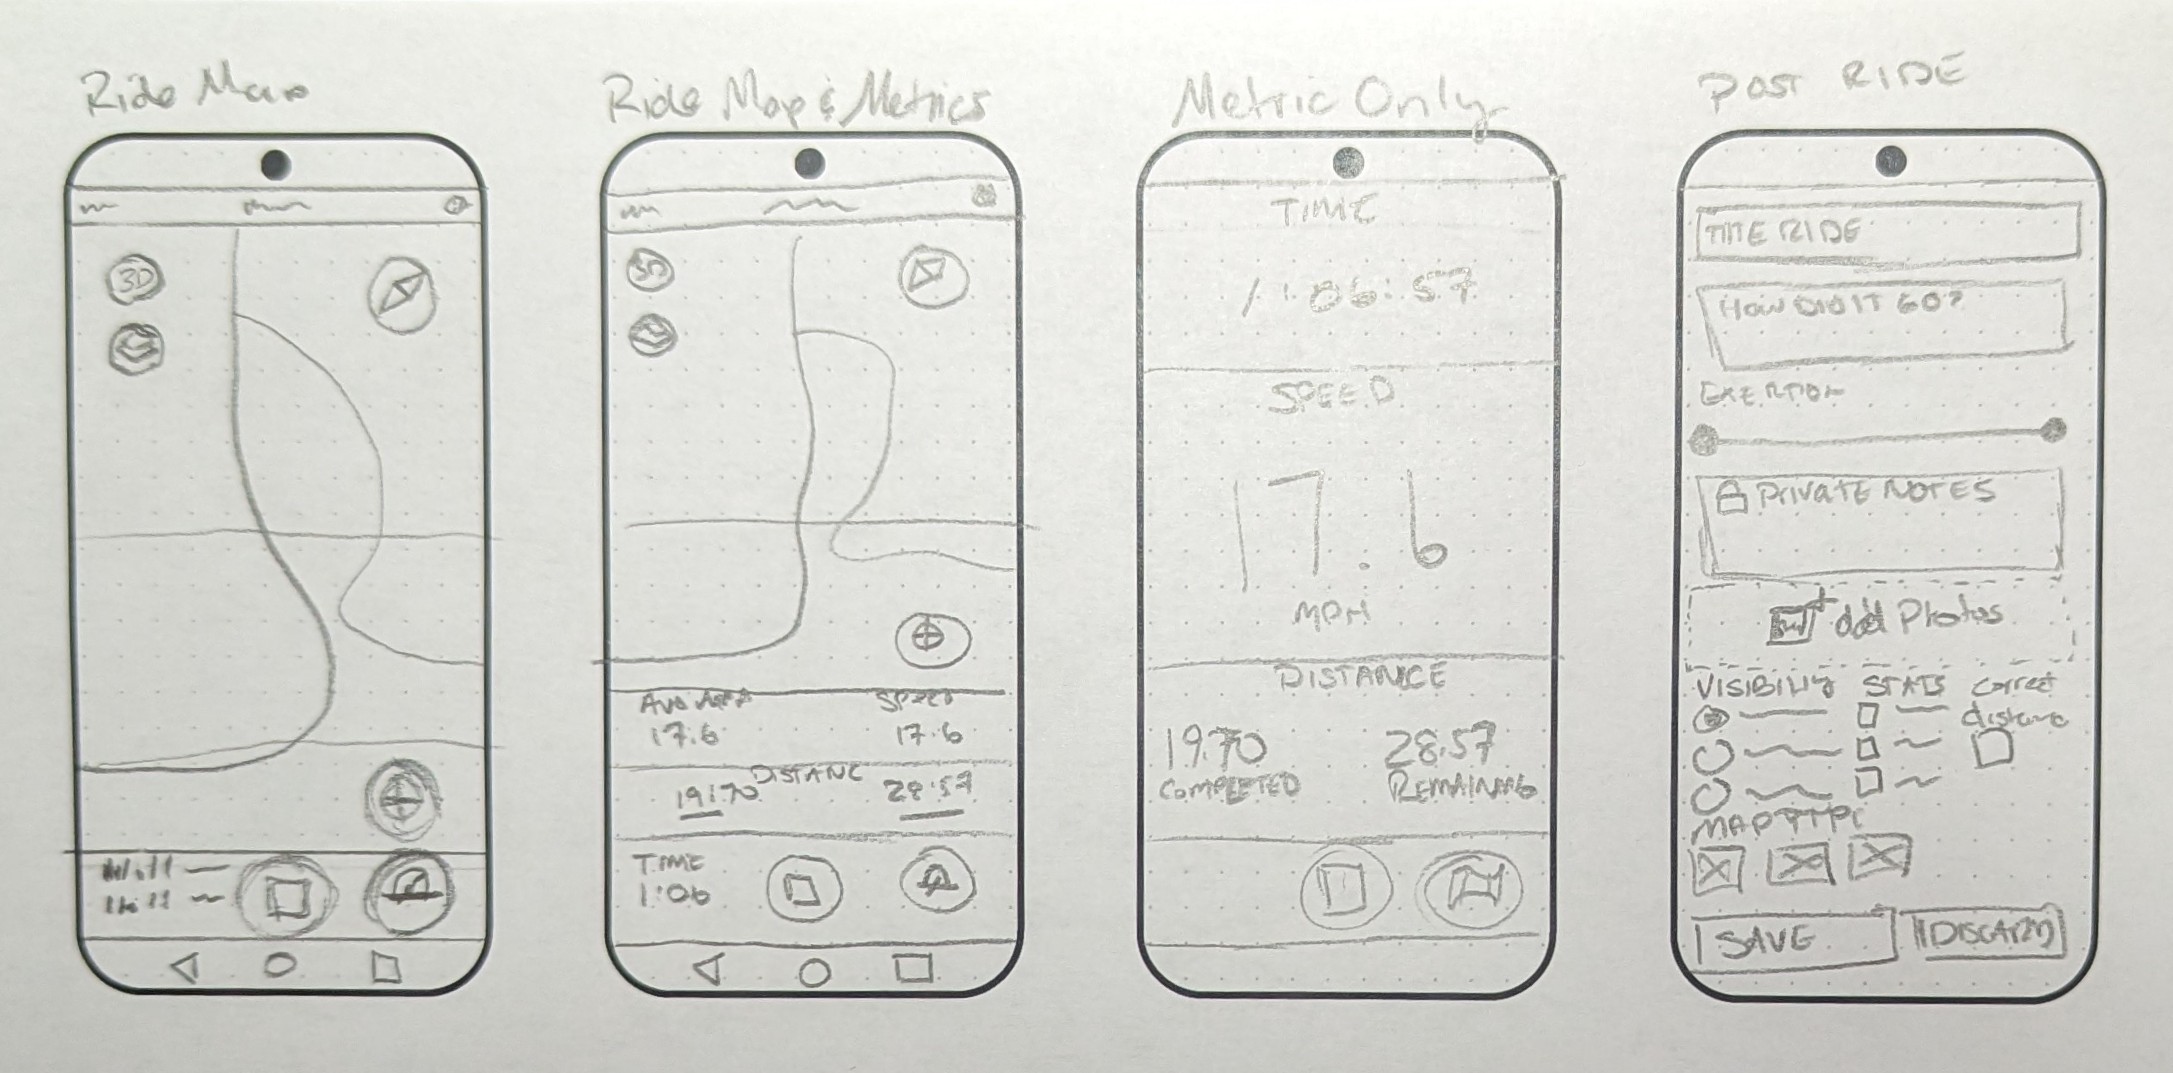 Ride Map
3D
Ride Map & Metrics
3D
Speed
17.6
17.6
Distanc
19:70
28:57
Time
1:06
Metric Only
TIME
1:06:57
SPEED
17.6
MPH
DISTANCE
19.70
28.57
COMPLETED
REMAINING
POST RIDE
TITLE RIDE
HOW DID IT GO?
EXERTION
PRIVATE NOTES
add Photos
VISIBILITY
STATS
Correct
distance
MAP TYPE
SAVE
DISCARD